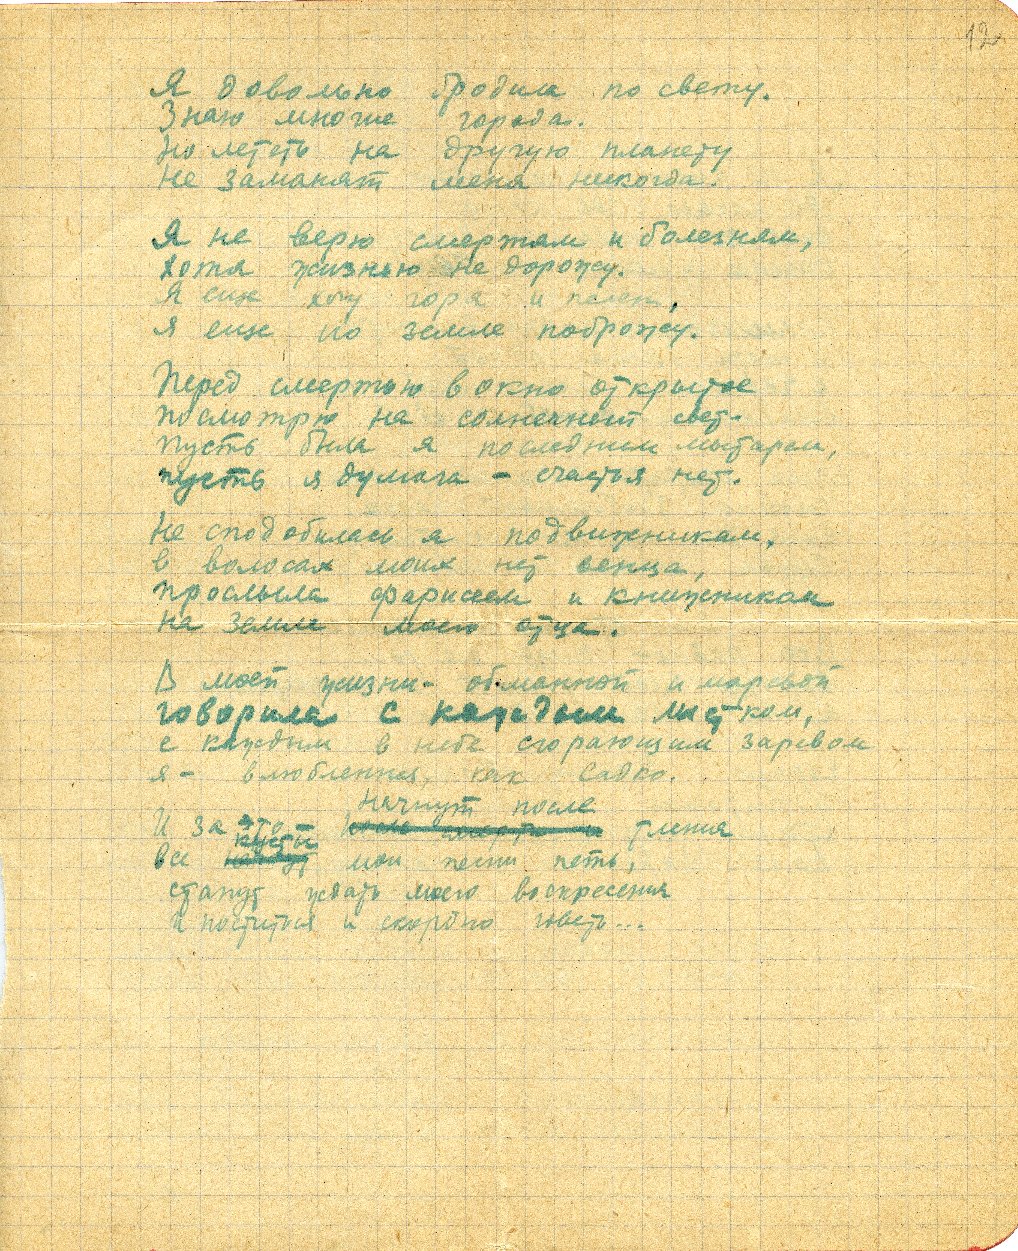 12
Я довольно бродила по свету.
Знаю многие города.
Но лететь на другую планету
не заманят меня никогда.
Я не верю смертям и болезням,
хотя жизнью не дорожу.
Я еще хочу горя и
я еще по земле поброжу.
Перед смертью в окно открытое
посмотрю на солнечный свет.
Пусть была я последним мытарем,
пусть я думала – счастья нет.
Не сподобилась я подвижникам,
в волосах моих нет венца,
прослыла фарисеем и книжником
на земле моего отца.
В моей жизни – обманной и маревой
говорила с каждым листком,
с каждым в небе сгорающим заревом
я – влюбленная, как Садко.
Начнут после
И за это после смерти и тления
кусты
Все начнут мои песни петь,
станут ждать моего воскресения
и поститься и скорбно говеть...